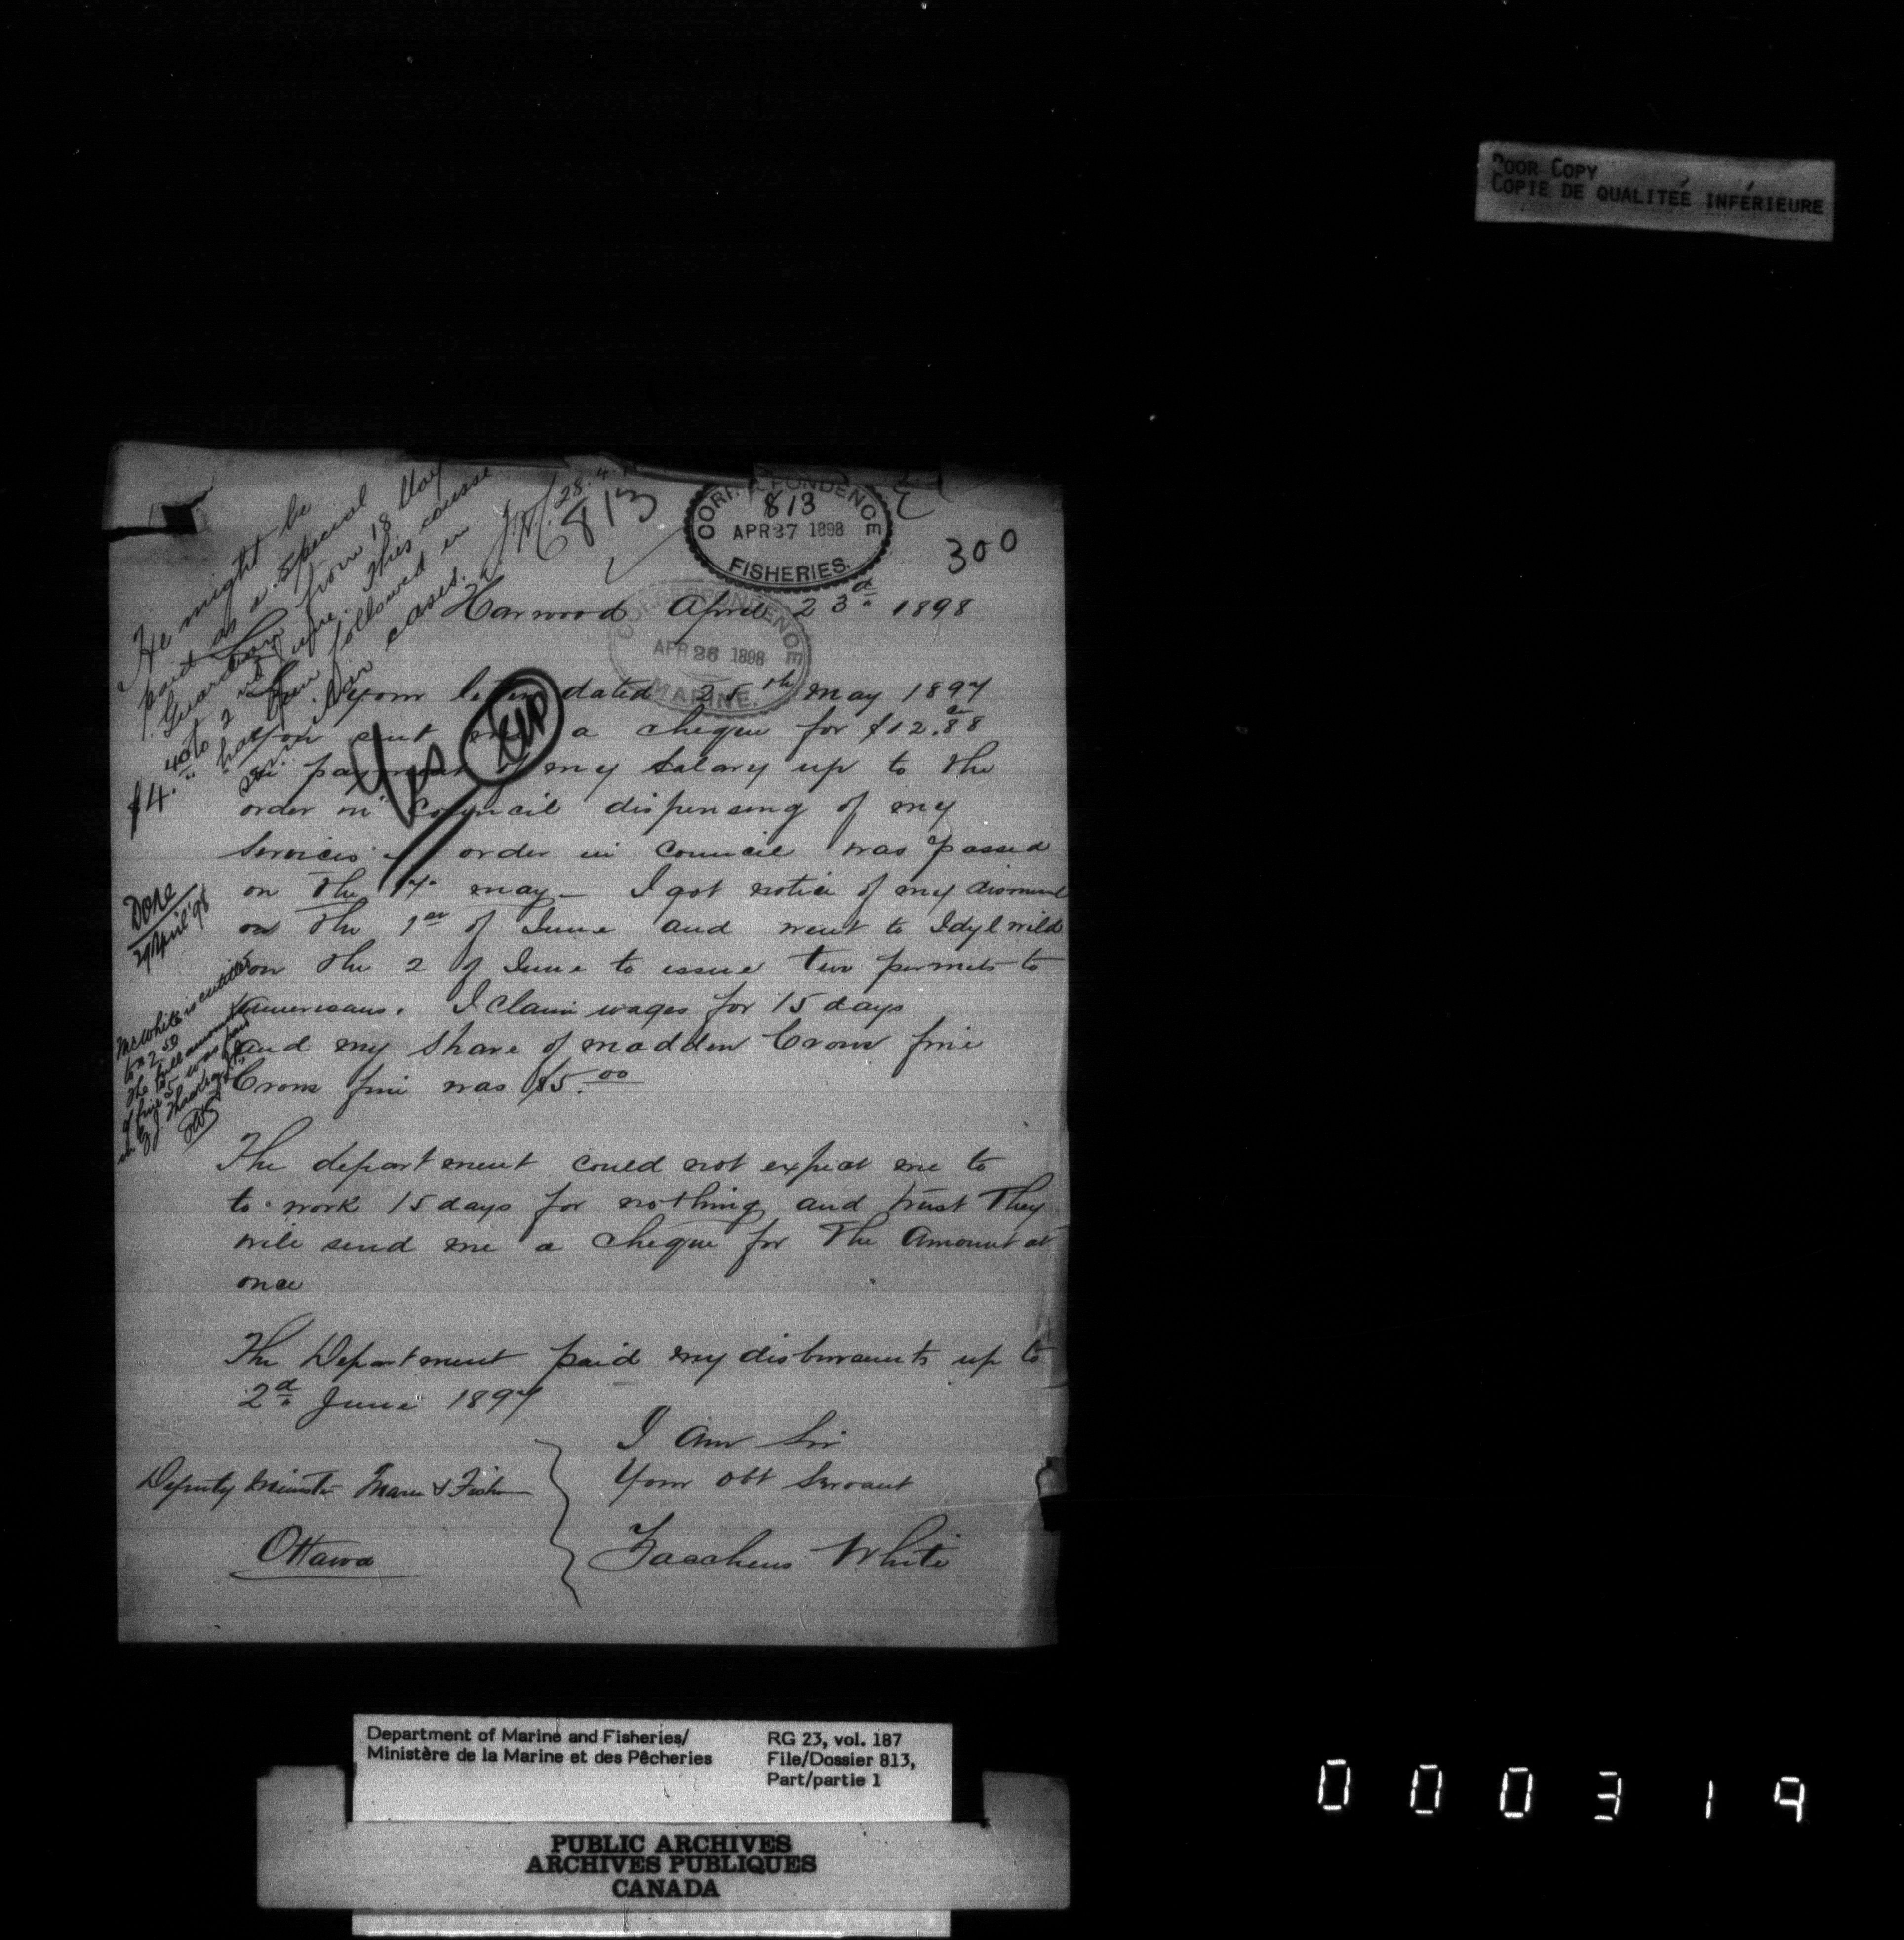 POOR COPY
COPIE DE QUALITEÉ INFÉRIEURE
He might be
paid as a special
Guardian from 18 May
to 2nd June. This course
has been followed in
similar cases.
$4.40
J.H. 28.4.
813
CORRESPONDENCE
813
APR 27 1898
FISHERIES.
300
CORRESPONDENCE
APR 26 1898
MARINE.
Harwood April 23d 1898
Sir
In your letter dated 25th May 1897
you sent me a cheque for $12.88
in payment of my salary up to the
order in council dispensing of my
Services order in council was passed
on the 17 may - I got notice of my dismissal
on the 1st of June and went to Idylwild
on the 2 of June to issue two permits to
Americans. I claim wages for 15 days
and my share of madden Crowe fine
Crowe fine was $5.00
Yes
Done
29 April '98
Mr White is entitled
to $2.50
The full amount
of fine $5 was paid
The department could not expect me to
to work 15 days for nothing and trust They
will send me a cheque for The Amount at
once
The Department paid my disbursements up to
2d June 1897
I am Sir
Your obt Servant
Zaccheus White
Deputy Minister Marine & Fish
Ottawa
Department of Marine and Fisheries/
Ministère de la Marine et des Pêcheries
RG 23, vol. 187
File/Dossier 813,
Part/partie 1
PUBLIC ARCHIVES
ARCHIVES PUBLIQUES
CANADA
000319